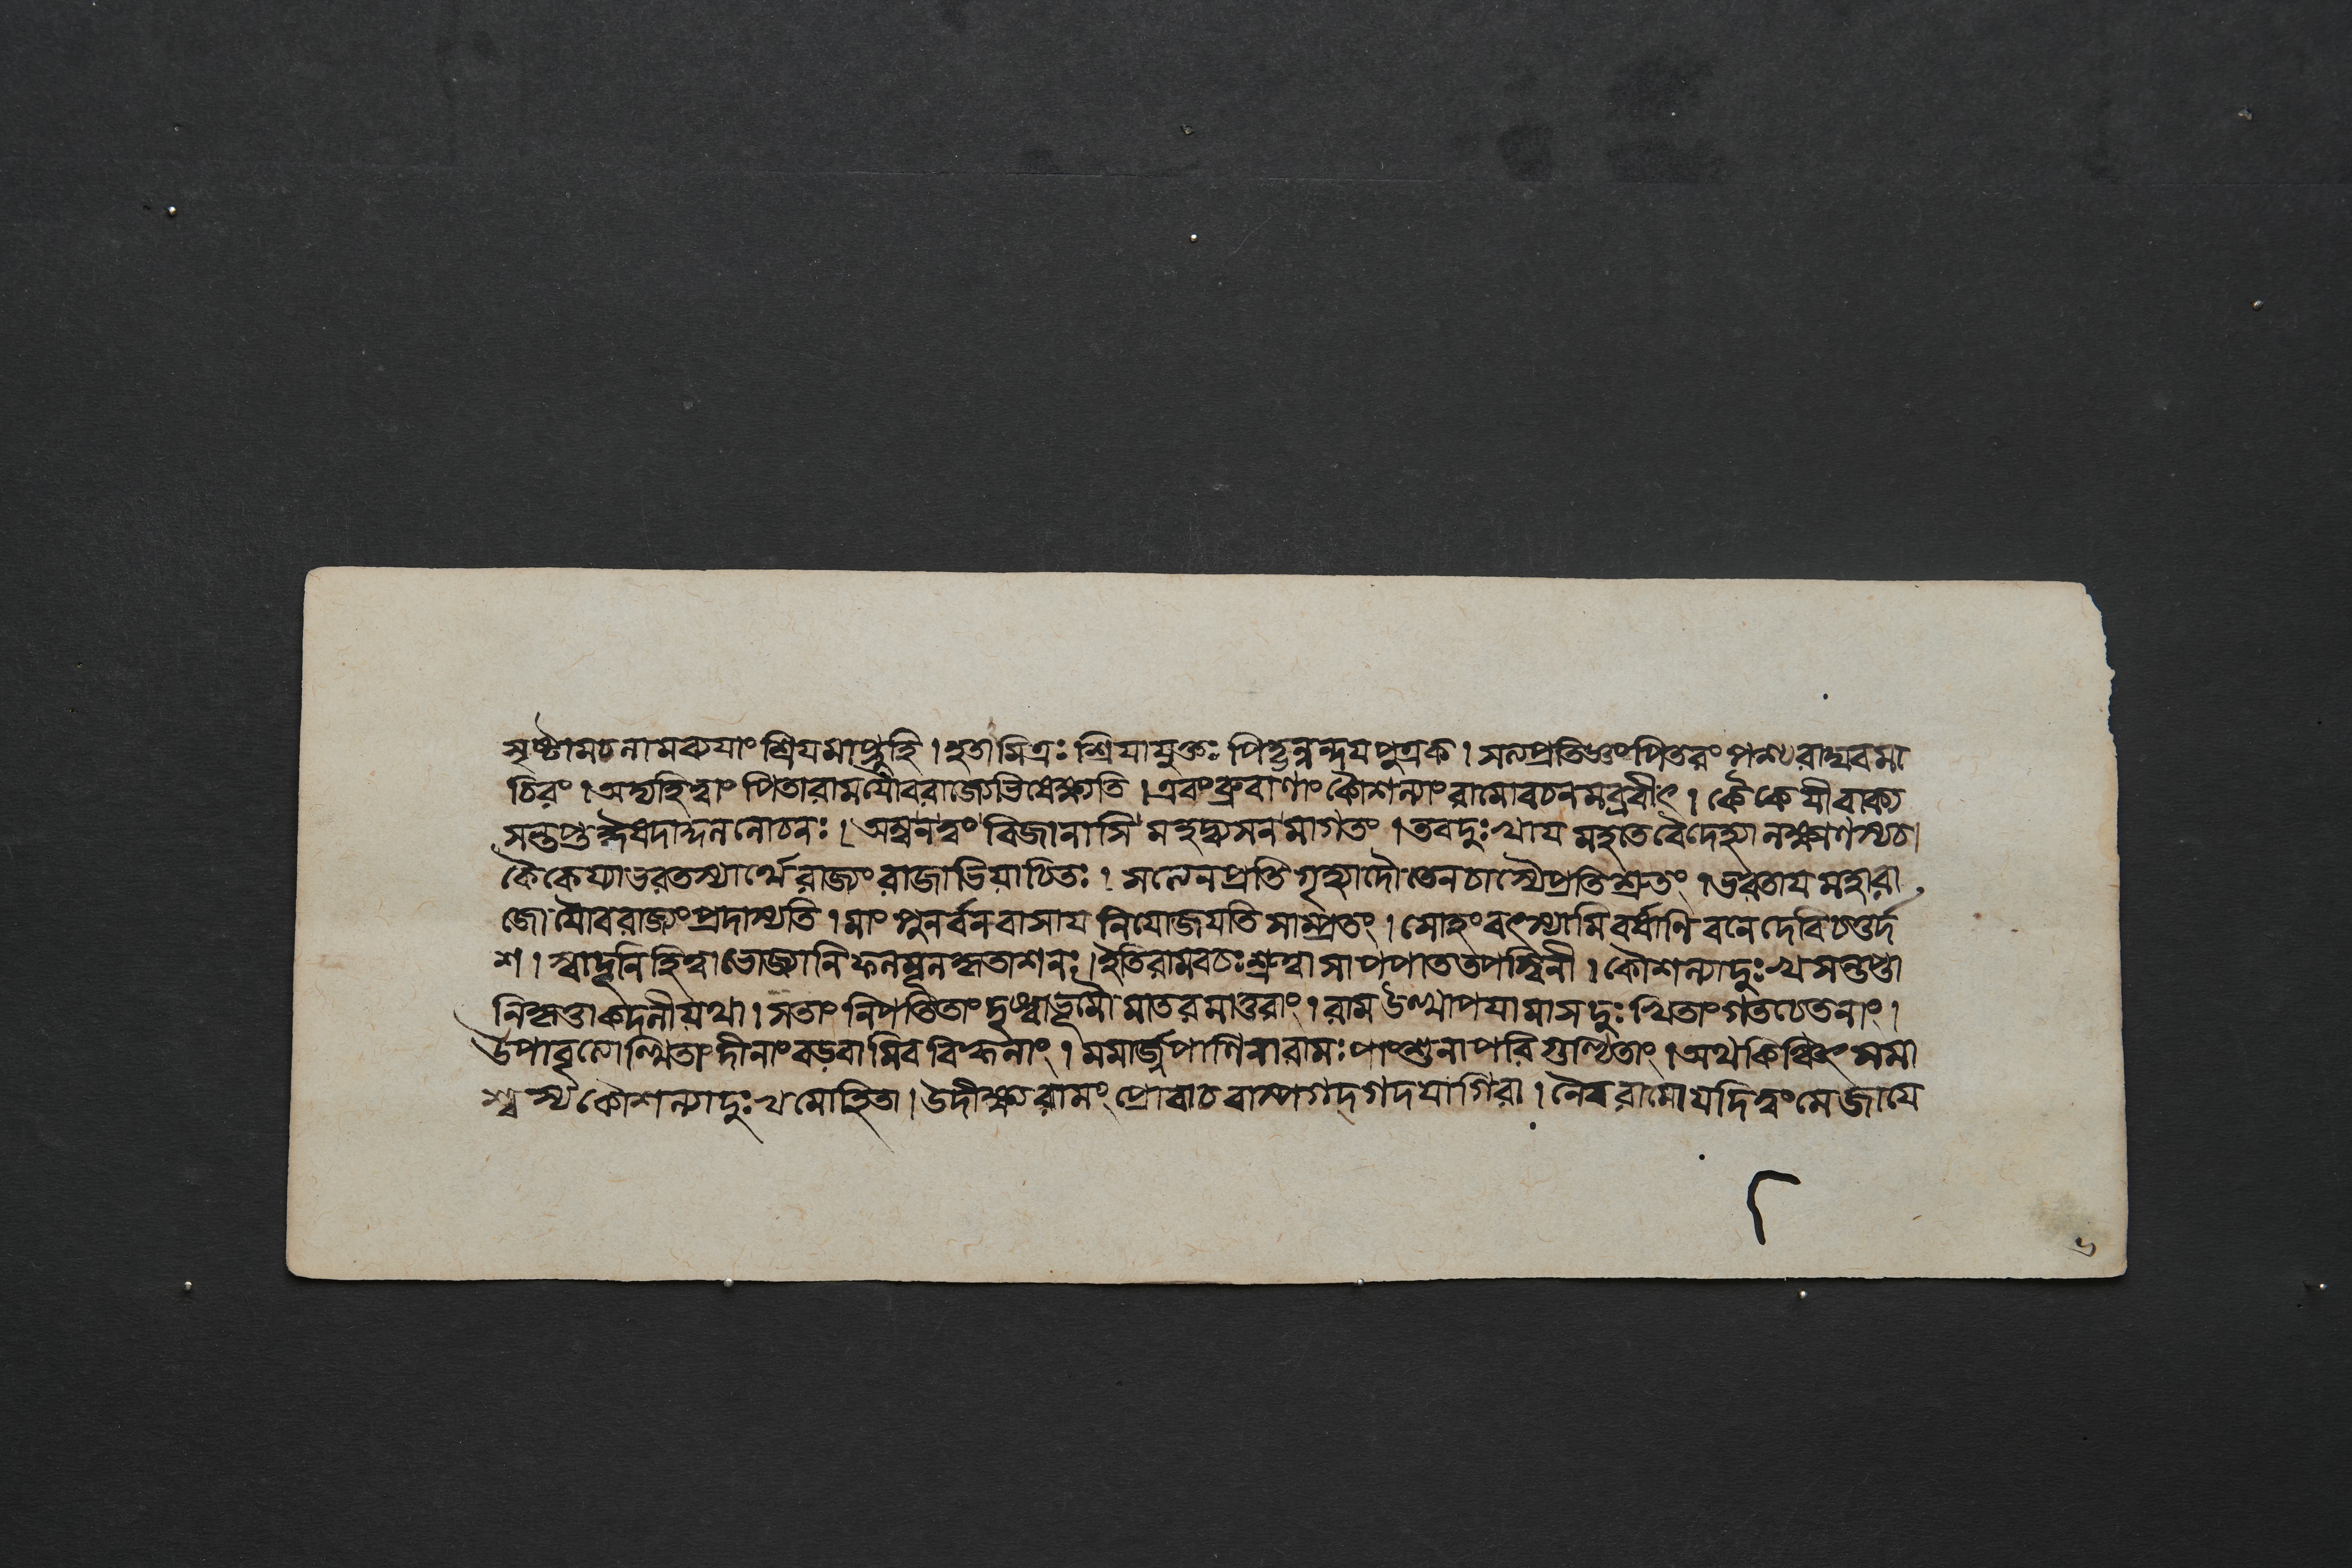 সৃষ্টামচলামব্যয়াং শ্রিয়মাপ্নুহি । হতামিত্রঃ শ্রিয়াযুক্তঃ পিতৃন্নন্দয় পুত্রক । সত্যপ্রতিজ্ঞং পিতরং পশ্য রাঘবমা
চিরং । অদ্যহি ত্বাং পিতারাম যৌবরাজ্যেভিষেক্ষ্যতি । এবং ব্রুবাণাং কৌশল্যাং রামোবচনমব্রবীৎ । কৈকেয়ীবাক্য
সন্তপ্ত ললোচনঃ । অম্বনত্বং বিজানাসি মহদ্ব্যসনমাগতং । তবদুঃখায় মহতে বৈদেহ্যা লক্ষ্মণস্যচ।
কৈকেয্যাভরতস্যার্থে রাজ্যং রাজাভিযাচিতঃ । সত্যেনপ্রতিগৃহ্যাদৌ তেনচাস্যৈপ্রতিশ্রুতং । ভরতায় মহারা
জো যৌবরাজ্যং প্রদাস্যতি । মাং পুনর্বনবাসায় নিয়োজয়তি সাম্প্রতং । সোহং বৎস্যামি বর্ষাণি বনে দেবি চতুর্দ
শ । স্বাদূনি হিত্বা ভোজ্যানি ফলমূলকৃতাশনঃ । ইতিরামবচঃ শ্রুত্বা সাপপাততপস্বিনী । কৌশল্যাদুঃখসন্তপ্তা
নিকৃত্তাকদলীযথা । সতাং নিপতিতাং দৃষ্ট্বাভূমৌ মাতরমাতুরাং । রাম উত্থাপয়ামাস দুঃখিতাং গতচেতনাং ।
উপাবৃত্যোত্থিতাং দীনাং বড়বামিব বিহ্বলাং । মমার্জপাণিনারামঃ পাংশুনাপরিগুণ্ঠিতাং । অথ কিঞ্চিৎ সমা
শ্বস্য কৌশল্যাদুঃখমোহিতা । উদীক্ষ্য রামং প্রোবাচ বাষ্পগদ্গদয়াগিরা । নৈব রামো যদি ত্বং মে জাযে